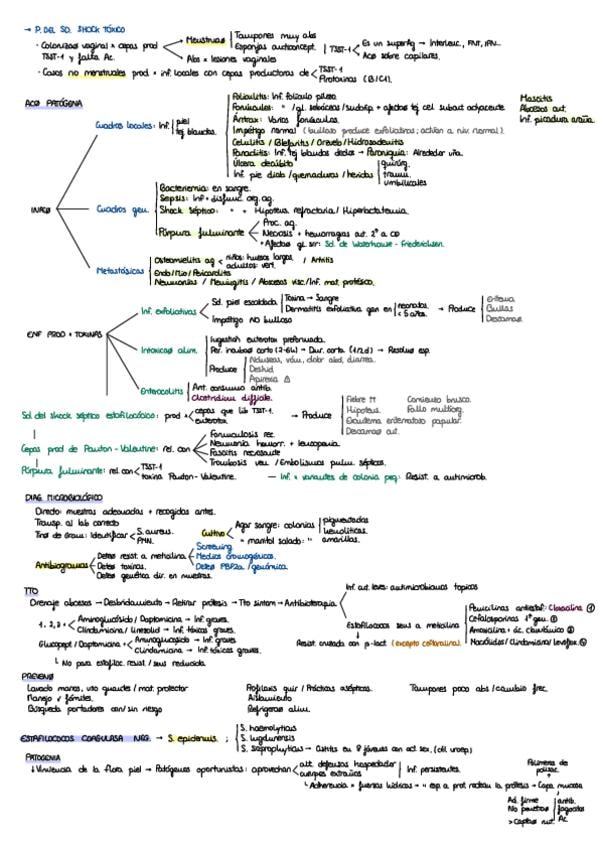 → P. DEL SD. SHOCK TÓXICO
· Colonizac vaginal x cepas prod TSST-1 y falta Ac.
Menstruac
Tampones muy abs
Esponjas anticoncept.
TSST-1
Es un superAg → Interleuc., FNT, IFN...
Acc sobre capilares.
Abs x lesiones vaginales
· Casos no menstruales prod x inf. locales con cepas productoras de
TSST-1.
Enterotoxinas (B/C1).
ACC PATÓGENA
INFECC
Cuadros locales: Inf.
piel
tej blandos.
Foliculitis: Inf. folículo piloso.
Forúnculos: " /gl. sebáceas/sudoríp. + afectac tej cel subcut adyacente
Ántrax: Varios forúnculos.
Impétigo normal (bulloso produce exfoliativas; actúan a niv. normal).
Celulitis / Blefaritis / Orzuelo / Hidrosadenitis
Panadizo: Inf. tej blandos dedos → Paroniquia: Alrededor uña.
Úlcera decúbito
Inf. pie diab / quemaduras / heridas
quirúrg.
traum.
umbilicales
Mastitis
Abscesos cut.
Inf. picadura araña.
Cuadros gen.
Bacteriemia: en sangre.
Sepsis: Inf + disfunc. org. ag.
Shock Séptico: " + Hipotens. refractaria / Hiperlactatemia.
Púrpura fulminante
Proc. ag.
Necrosis + hemorragias cut. 2º a CD
+ Afectac gl. sr: Sd. de Waterhouse - Friederichsen.
Metastásicos
Osteomielitis ag
niños: huesos largos.
adultos: vert.
/ Artritis
Endo/Mio/Pericarditis
Neumonías / Meningitis / Abscesos visc./Inf. mat. protésico.
ENF PROD x TOXINAS
Inf. exfoliativas
Sd. piel escaldada
Toxina → Sangre
Dermatitis exfoliativa gen en
neonatos.
< 5 años.
→ Produce
Eritema
Bullas
Descamac.
Impétigo NO bulloso
Intoxicac alim.
Ingestión enterotox preformada.
Per. incubac corto (2-6h) → Dur. corta (1/2d) → Resoluc esp.
Produce
Náuseas, vóm, dolor abd, diarrea.
Deshid
Apirexia ⚠
Enterocolitis
Ant. consumo antib.
Clostridium difficile.
Sd del shock séptico estafilocócico: prod x
cepas que lib TSST-1.
enterotox.
→ Produce
Fiebre ↑↑
Hipotens.
Exantema eritematoso papular.
Descamac cut.
Comienzo brusco.
Fallo multiorg.
Cepas prod de Panton-Valentine: rel. con
Forunculosis rec.
Neumonía hemorr. + leucopenia.
Fascitis necrosante
Trombosis ven / Embolismos pulm. sépticos.
Púrpura fulminante: rel. con
TSST-1
toxina Panton-Valentine.
— Inf. x variantes de colonia peq: Resist. a antimicrob.
DIAG. MICROBIOLÓGICO
Directo: muestras adecuadas + recogidas antes.
Transp. al lab correcto
Tinc de Gram: Identificar
S. aureus.
PMN.
Cultivo
Agar sangre: colonias
pigmentadas
hemolíticas
" manitol salado: "
amarillas.
Antibiograma
Detec resist. a meticilina
Screening
Medios cromogénicos.
Detec PBP2a / genómica.
Detec toxinas.
Detec genética dir. en muestras.
TTO
Drenaje abscesos → Desbridamiento → Retirar prótesis → Tto síntom → Antibioterapia
Inf. cut. leves: antimicrobianos tópicos
Estafilococos sens a meticilina
Penicilinas antiestaf: Cloxacilina ①
Cefalosporinas 1ª gen. ①
Amoxicilina + ác. clavulánico ②
Macrólidos / Clindamicina / Levoflox.
Resist. cruzada con β-lact (excepto ceftarolina).
1, 2, 3 +
Aminoglucósido / Daptomicina → Inf. graves.
Clindamicina / Linezolid → Inf. tóxicas graves.
Glucopept / Daptomicina +
Aminoglucósido → Inf. graves.
Clindamicina → Inf. tóxicas graves
↳ No para estafiloc. resist / sens reducida.
PREVENC
Lavado manos, uso guantes / mat. protector
Manejo x fómites.
Búsqueda portadores con/sin riesgo
Profilaxis quir / Prácticas asépticas.
Aislamiento.
Refrigerac alim.
Tampones poco abs / cambio frec.
ESTAFILOCOCOS COAGULASA NEG. → S. epidermis. ;
S. haemolyticus
S. lugdunensis
S. saprophyticus → Cistitis en ♀ jóvenes con act sex. (col. uroep.)
PATOGENIA
↓ Virulencia de la flora piel → Patógenos oportunistas: aprovechan
alt. defensas hospedador
cuerpos extraños
Inf. persistentes.
↳ Adherencia x fuerzas hídricas → " esp a prot. rodean la prótesis → Capa mucosa
Polímeros de polisac.
Ad. firme
No penetrac
> Captac nut.
antib.
fagocitos
Ac